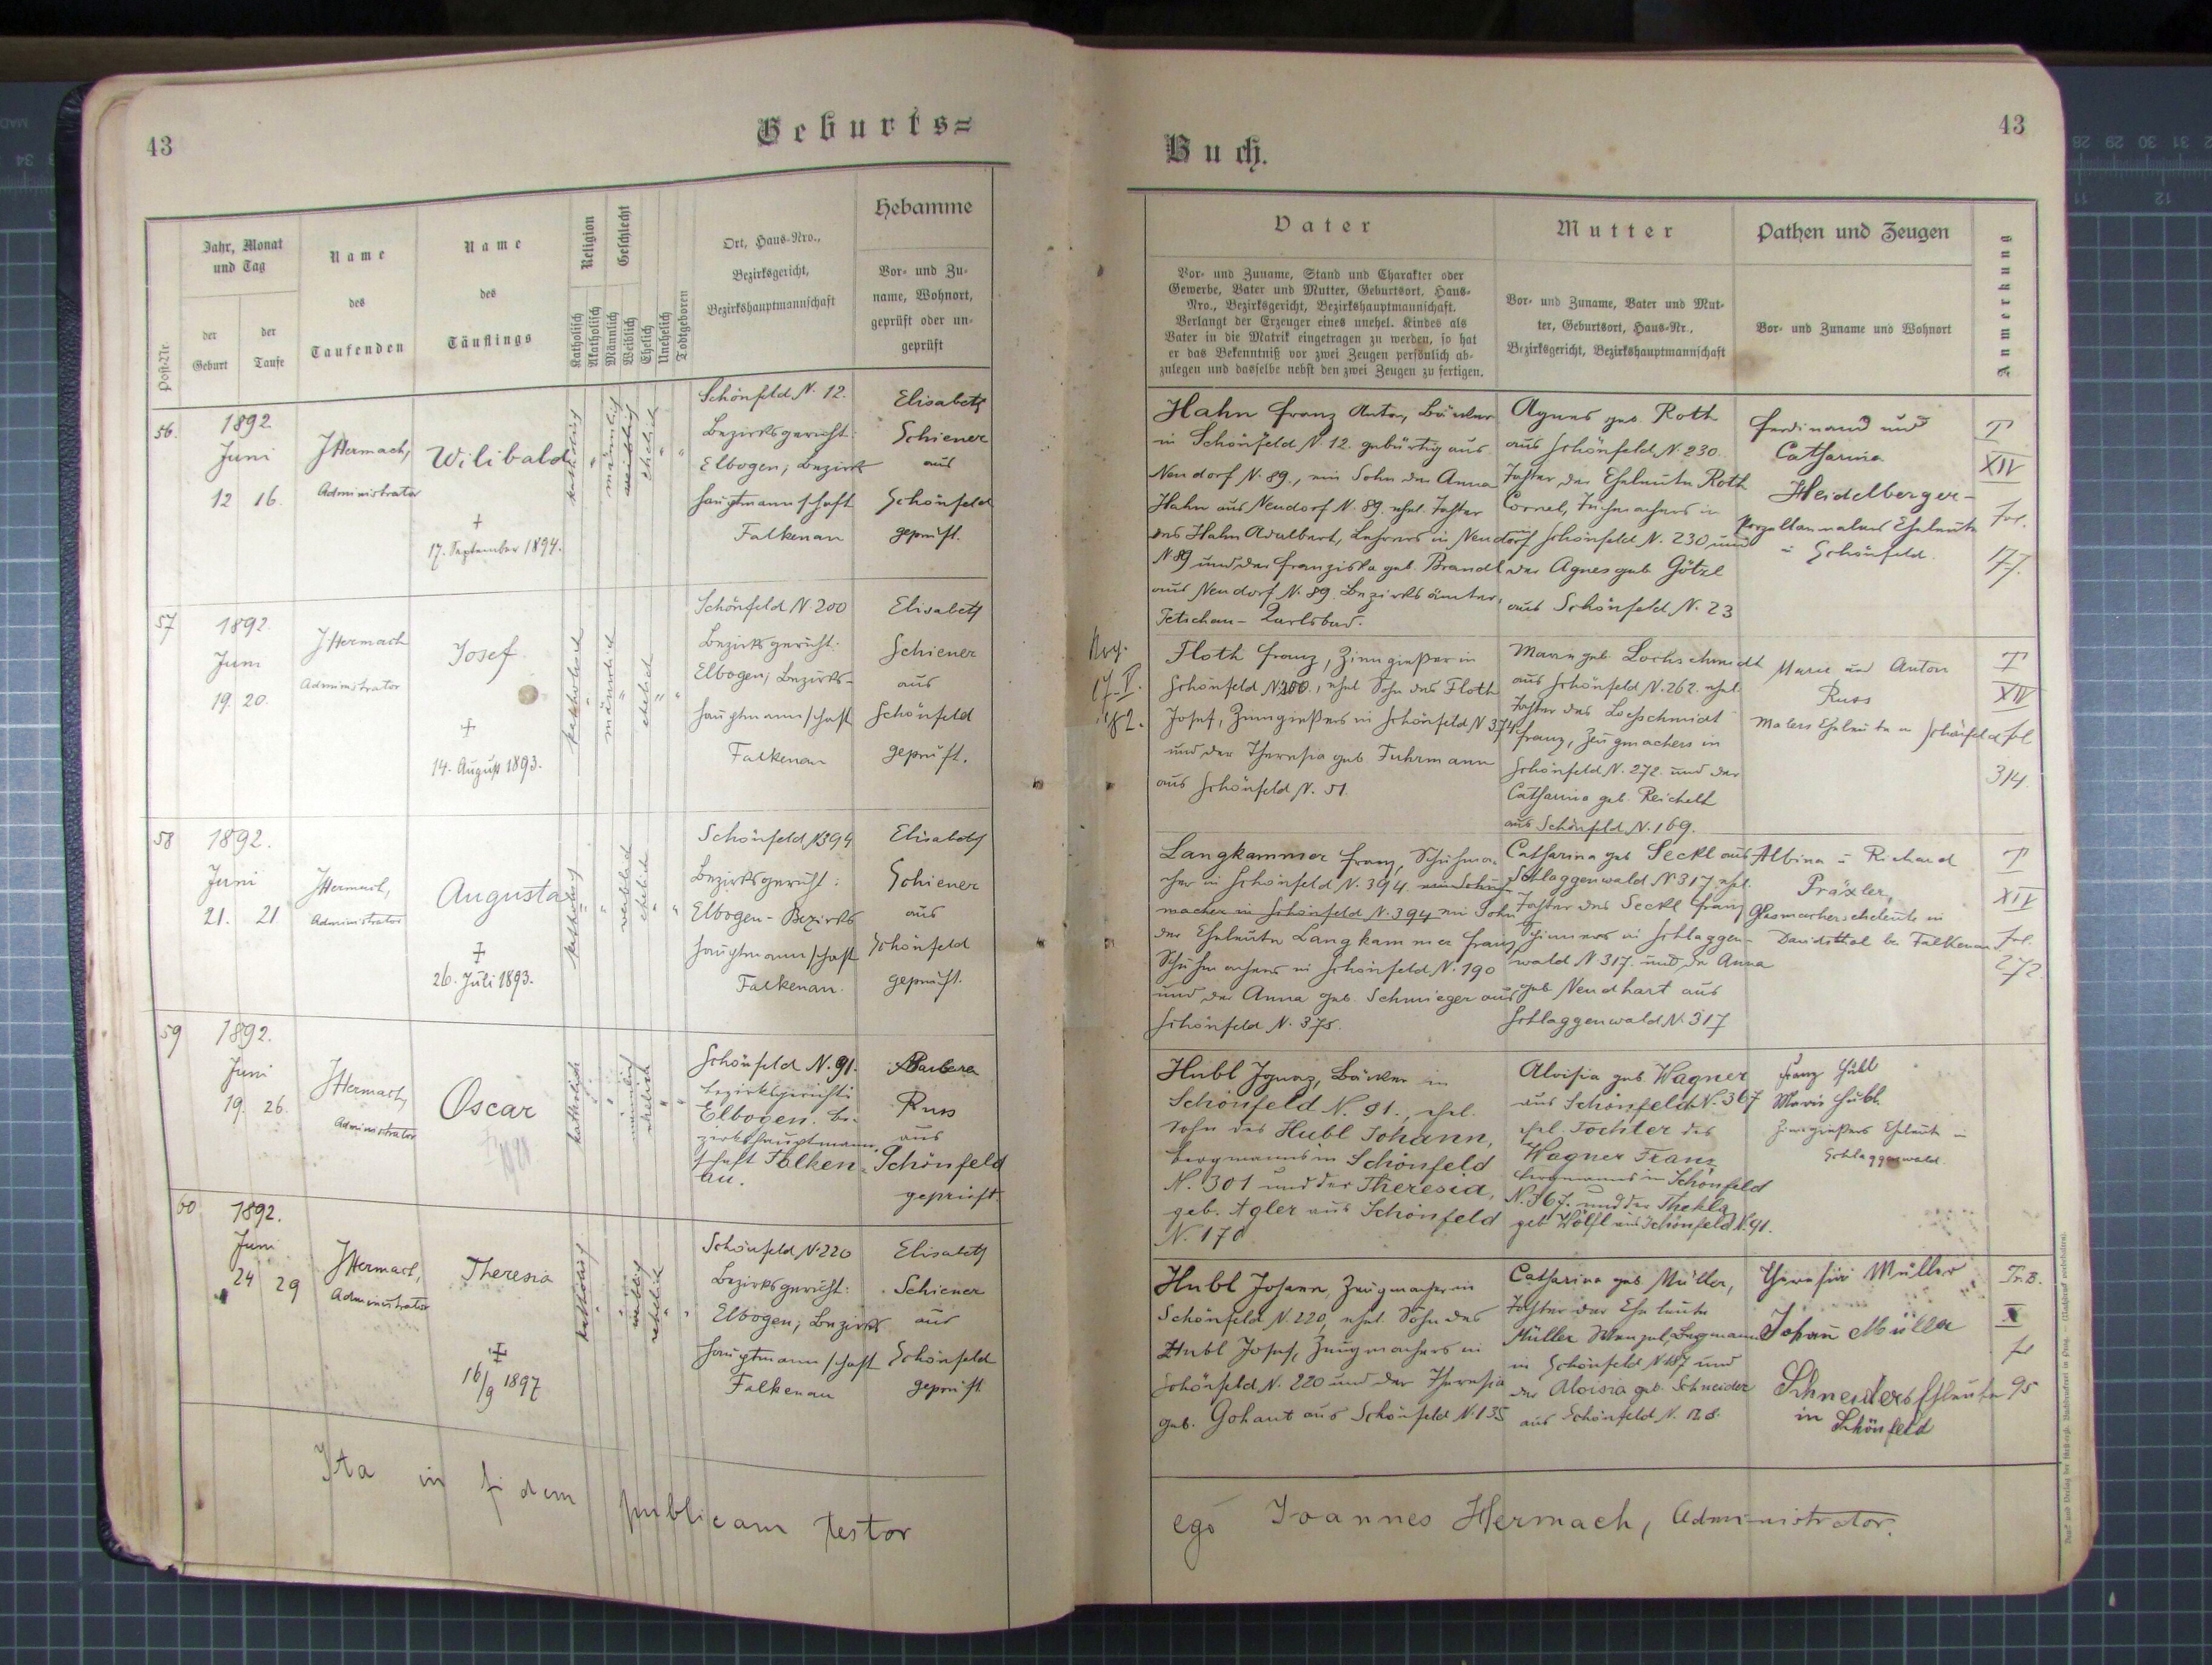 43
Geburts=
Post-Nr.
Jahr, Monat
und Tag
der
Geburt
der
Taufe
Name
des
Taufenden
Name
des
Täuflings
Religion
Katholisch
Akatholisch
Geschlecht
Männlich
Weiblich
Ehelich
Unehelich
Todtgeboren
Ort, Haus-Nro.,
Bezirksgericht,
Bezirkshauptmannschaft
Hebamme
Vor- und Zu-
name, Wohnort,
geprüft oder un-
geprüft
56.
1892
Juni
12 16.
JHermach,
Administrator
Wilibald
+
17. September 1894.
katholisch
männlich
weiblich
ehelich
Schönfeld N. 12.
Bezirksgericht:
Elbogen, Bezirks
hauptmannschaft
Falkenau
Elisabeth
Schiener
aus
Schönfeld
geprüft.
57
1892.
Juni
19. 20.
JHermach
Administrator
Josef
+
14. August 1893.
katholisch
männlich
ehelich
Schönfeld N. 200
Bezirksgericht:
Elbogen, Bezirks-
hauptmannschaft
Falkenau
Elisabeth
Schiener
aus
Schönfeld
geprüft.
58
1892.
Juni
21. 21
JHermach,
Administrator
Augusta
+
26. Juli 1893.
katholisch
weiblich
ehelich
Schönfeld N394
Bezirksgericht:
Elbogen - Bezirks
hauptmannschaft
Falkenau.
Elisabeth
Schiener
aus
Schönfeld
geprüft.
59
1892.
Juni
19. 26.
JHermach,
Administrator
Oscar
katholisch
männlich
ehelich
Schönfeld N. 91.
Bezirksgericht:
Elbogen. Be-
zirkshauptmann-
schaft Falken-
au.
Barbara
Russ
aus
Schönfeld
geprüft
60
1892.
Juni
24 29
JHermach,
Administrator
Theresia
+
16/9 1897
katholisch
weiblich
ehelich
Schönfeld N. 220
Bezirksgericht:
Elbogen, Bezirks
hauptmannschaft
Falkenau
Elisabeth
Schiener
aus
Schönfeld
geprüft
Ita in fidem publicam testor
43
Buch.
Vater
Vor- und Zuname, Stand und Charakter oder
Gewerbe, Vater und Mutter, Geburtsort, Haus-
Nro., Bezirksgericht, Bezirkshauptmannschaft.
Verlangt der Erzeuger eines unehel. Kindes als
Vater in die Matrik eingetragen zu werden, so hat
er das Bekenntniß vor zwei Zeugen persönlich ab-
zulegen und dasselbe nebst den zwei Zeugen zu fertigen.
Mutter
Vor- und Zuname, Vater und Mut-
ter, Geburtsort, Haus-Nr.,
Bezirksgericht, Bezirkshauptmannschaft
Pathen und Zeugen
Vor- und Zuname und Wohnort
Anmerkung
Hahn Franz Anton, Bäcker
in Schönfeld N. 12. gebürtig aus
Neudorf N. 89., ein Sohn der Anna
Hahn aus Neudorf N. 89. ehel. Tochter
des Hahn Adalbert, Lehrers in Neudorf
N 89 und der Franziska geb. Brandl
aus Neudorf N. 89. Bezirksämter,
Petschau - Karlsbad.
Agnes geb. Roth
aus Schönfeld N. 230.
Tochter der Eheleute Roth
Cornel, Tuchmachers in
Schönfeld N. 230, und
der Agnes geb. Götzl
aus Schönfeld N. 23
Ferdinand und
Catharina
Heidelberger -
Porzellanmalers Eheleute
in Schönfeld.
T
XIV
fol.
177
17.
182.
Floth Franz, Zinngießer in
Schönfeld N 200., ehel. Sohn des Floth
Josef, Zinngießers in Schönfeld N 374
und der Theresia geb. Fuhrmann
aus Schönfeld N. 51.
Marie geb. Lochschmidt
aus Schönfeld N. 262. ehel.
Tochter des Lochschmidt
Franz, Zeugmachers in
Schönfeld N. 272. und der
Catharina geb. Reichelt
aus Schönfeld N. 169.
Marie und Anton
Russ
Malers Eheleute in Schönfeld
T
XIV
fol
314
Langkammer Franz, Schuhma-
cher in Schönfeld N. 394. ein Schuh-
macher in Schönfeld N. 394 ein Sohn
der Eheleute Langkammer Franz
Schuhmachers in Schönfeld N. 190
und der Anna geb. Schmieger aus
Schönfeld N. 375.
Catharina geb. Seckl aus
Schlaggenwald N 317. ehel.
Tochter des Seckl Franz
in Schlaggen-
wald N 317. und der Anna
geb. Neudhart aus
Schlaggenwald N. 317
Albina u Richard
Präxler,
Glasmacherseheleute in
Davidsthal bei Falkenau
T
XIV
fol.
272.
Hubl Ignaz, Bäcker in
Schönfeld N. 91., ehel.
Sohn des Hubl Johann,
Bergmanns in Schönfeld
N. 301 und der Theresia,
geb. Agler aus Schönfeld
N. 170
Aloisia geb. Wagner
aus Schönfeld N. 367
ehel. Tochter des
Wagner Franz
Bergmanns in Schönfeld
N. 367. und der Thekla
geb. Wölfl aus Schönfeld N. 91.
Franz Hubl
Marie Hubl.
Zinngießers Eheleute in
Schlaggenwald.
Hubl Johann, Zeugmacher in
Schönfeld N. 220, ehel. Sohn des
Hubl Josef, Zeugmachers in
Schönfeld N. 220 und der Theresia
geb. Gohaut aus Schönfeld N. 135
Catharina geb. Müller,
Tochter der Eheleute
Müller Wenzel, Bergmann
in Schönfeld N 187 und
der Aloisia geb. Schneider
aus Schönfeld N. 128.
Theresia Müller
Johann Müller
Schneiders Eheleute
in Schönfeld
Tr. B.
X
fol
95
ego Joannes Hermach, Administrator.